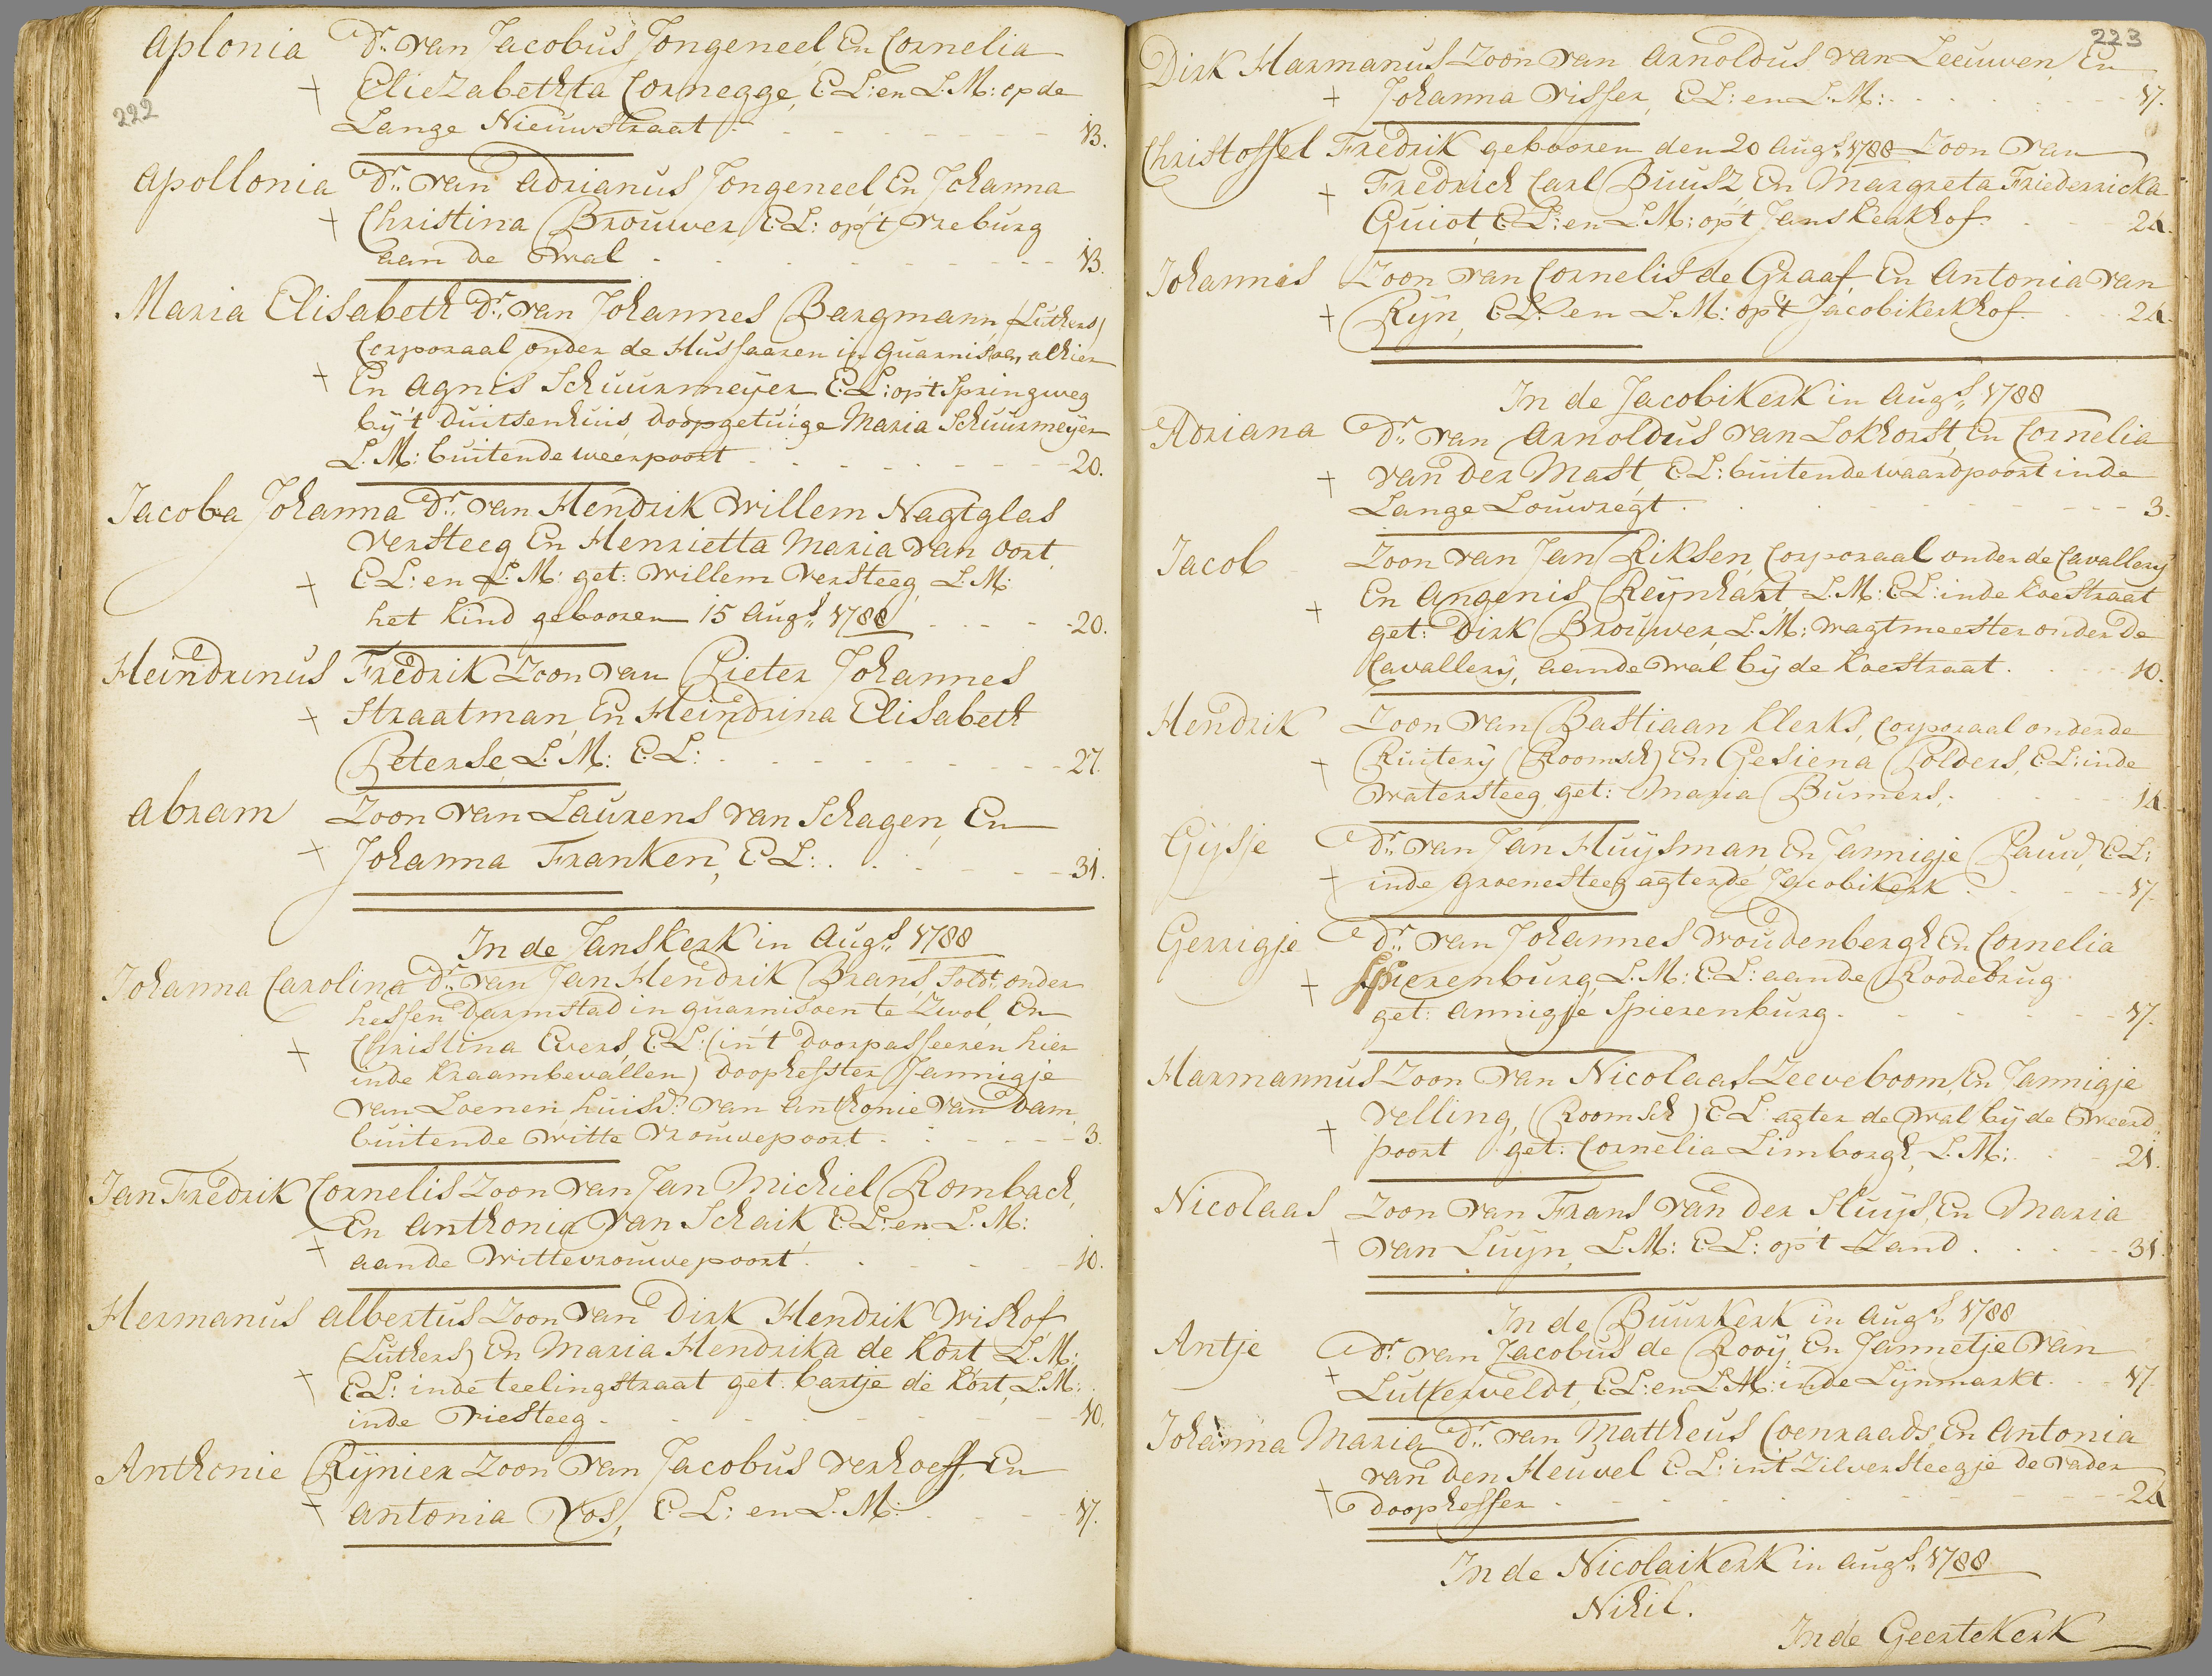 222
Aplonia Dr. van Jacobus Jongeneel, En Cornelia
Eliezabethta Cornegge, E.L: en L.M: op de
Lange Nieuwstraat 13.
Apollonia Dr. van Adrianus Jongeneel En Johanna
Christina Brouwer, E.L: op't Vreburg
aan de Wal 13.
Maria Elisabeth Dr. van Johannes Bargmann, (Luthers)
Corporaal onder de Hussaaren in Guarnisoen alhier
En Agnis Schuurmeyer E.L: op't Springweg
by 't Duitsenhuis, doopgetuige Maria Schuurmeyer
L.M: buitende weerpoort 20.
Jacoba Johanna Dr. van Hendrik Willem Nagtglas
Versteeg En Henrietta Maria van Oort,
E.L: en L.M: get: Willem Versteeg, L.M:
het kind gebooren 15 Augs. 1788 20.
Heindrinus Fredrik Zoon van Pieter Johannes
Straatman, En Heindrina Elisabeth
Peterse, L.M: E.L: 27.
Abram Zoon van Laurens van Schagen, En
Johanna Franken, E.L: 31.
In de Janskerk in Augs. 1788
Johanna Carolina Dr. van Jan Hendrik Brans, Soldt. onder
hessen Darmstad in guarnisoen te Zwol, En
Christina Evers, E.L: (in't doorpasseeren hier
inde Kraambevallen) doophefster Jannigje
van Loenen huisv: van Anthonie van Dam,
buitende Witte Vrouwepoort 3.
Jan Fredrik Cornelis Zoon van Jan Michiel Rombach,
En Anthonia van Schaik, E.L: en L.M:
aande Wittevrouwepoort 10.
Hermanus Albertus Zoon van Dirk Hendrik Wishof
(Luthers) En Maria Hendrika de Kort L.M:
E.L: inde teelingstraat get: bartje de Kort, L.M:
inde Driesteeg 10.
Anthonie Rynier Zoon van Jacobus Verhoeff, En
Antonia Vos, E.L: en L.M: 17.
223
Dirk Harmanus Zoon van Arnoldus van Leeuwen, En
Johanna Visser, E.L: en L.M: 17.
Christoffel Fredrik gebooren den 20 Augs. 1788 Zoon van
Fredrich Carl Buusz En Margreta Friederricka
Guiot, E.L: en L.M: op't Janskerkhof 24.
Johannes Zoon van Cornelis de Graaf, En Antonia van
Ryn, E.L: en L.M: op't Jacobikerkhof 24.
In de Jacobikerk in Augs. 1788
Adriana Dr. van Arnoldus van Lokhorst, En Cornelia
van der Mast, E.L: buitendewaardpoort inde
Lange Louwregt 3.
Jacob Zoon van Jan Riksen, Corporaal onder de Cavallery
En Angenis Reynhart L.M: E.L: inde Koestraat
get: Dirk Brouwer, L.M: wagtmeester onder de
Cavallery, aande wal by de Koestraat 10.
Hendrik Zoon van Bastiaan Klerks, Corporaal onder de
Ruitery (Roomsch) En Gesiena Polders, E.L: inde
Watersteeg, get: Maria Bumers, 14.
Gysje Dr. van Jan Huysman, En Jannigje Pauw, E.L:
inde Groenesteeg agterde Jacobikerk 17.
Gerrigje Dr. van Johannes Woudenbergh En Cornelia
Spierenburg, L.M: E.L: aande Roodebrug
get: Annigje Spierenburg 17.
Harmannus Zoon van Nicolaas Zeeveboom, En Jannigje
Velling, (Roomsch) E.L: agter de Wal by de Weerd
poort get: Cornelia Limborgh, L.M: 21.
Nicolaas Zoon van Frans van der Sluys, En Maria
van Luyn, L.M: E.L: op't Zand 31.
In de Buurkerk in Augs. 1788
Antje Dr. van Jacobus de Rooy En Jannetje van
Lutterveldt, E.L: en L.M: inde Lynmarkt 17.
Johanna Maria Dr. van Mattheus Coenraads, En Antonia
van den Heuvel E.L: in't Zilversteegje de vader
doopheffer 24.
In de Nicolaikerk in Augs. 1788
Nihil.
In de Geertekerk